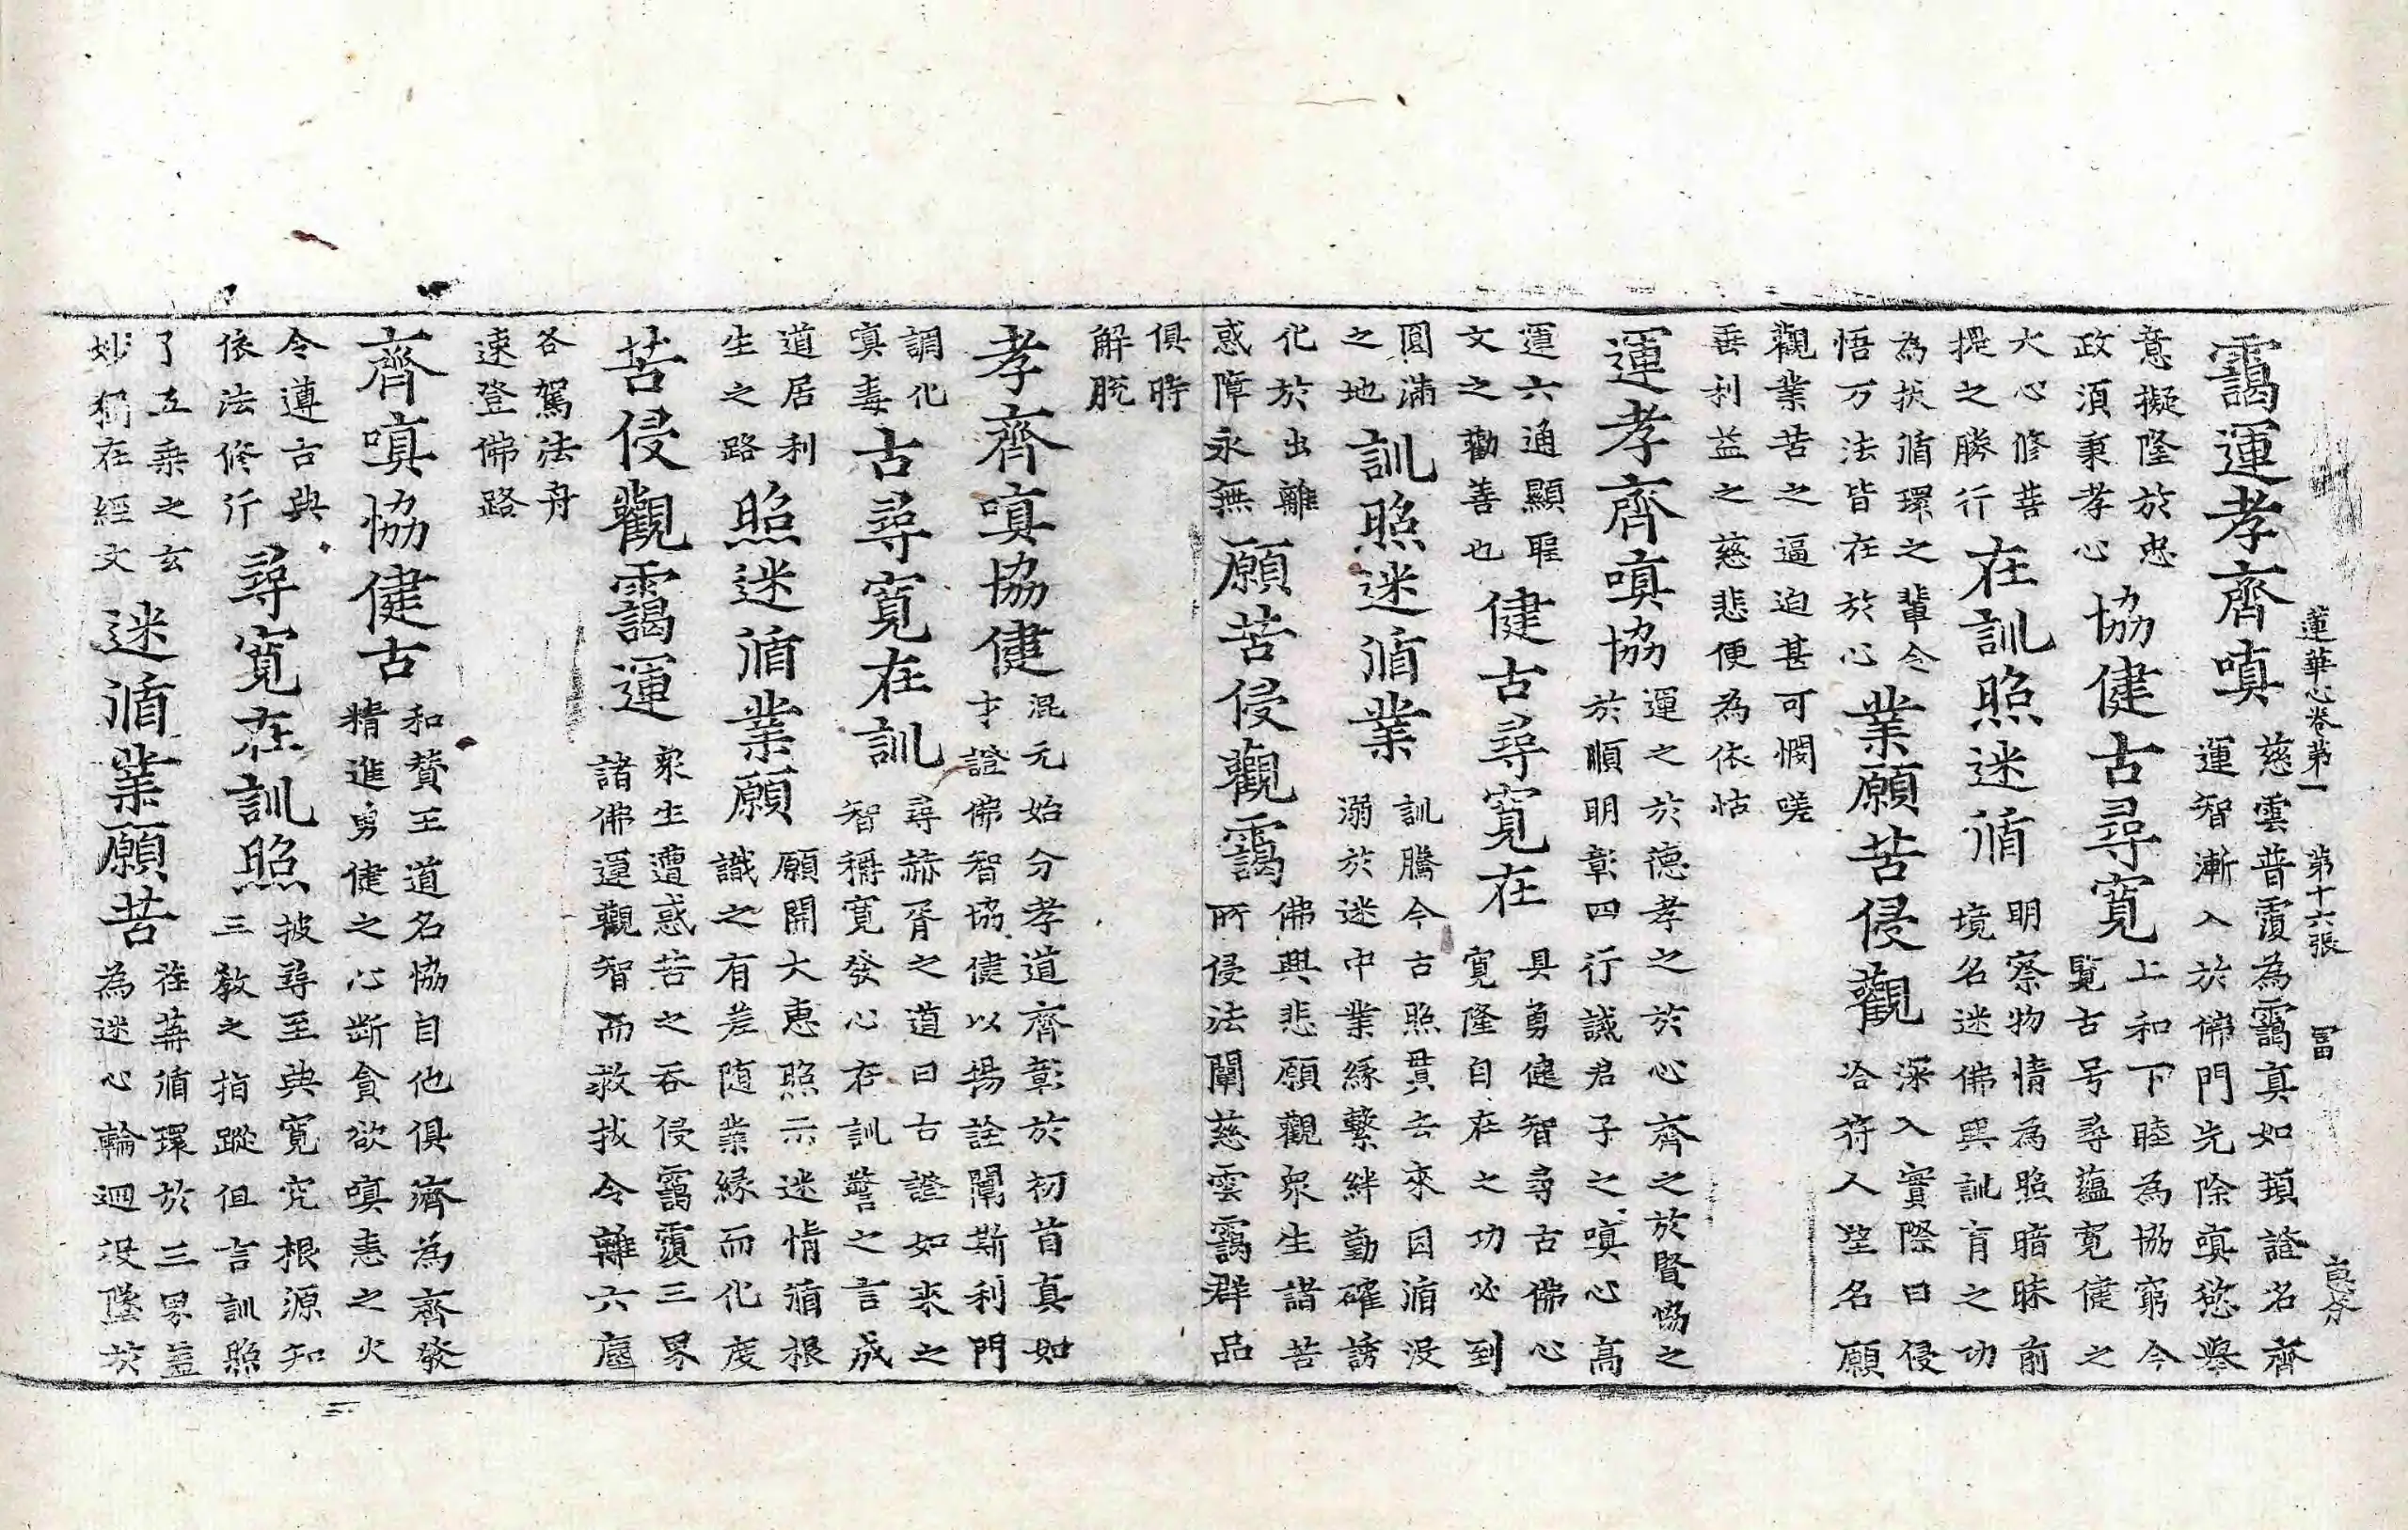 蓮華心卷第一　第十六張　冨
靄運孝齊嗔
慈雲普覆為靄真如頊證名齊
運智漸入於佛門先除嗔慾舉
意擬隆於忠
政須秉孝心
協健古尋寬
上和下睦為協窮今
覧古号尋蘊寬健之
大心修菩
提之勝行
在訓照迷循
明察物情為照暗昧前
境名迷佛興訓肓之功
為扶循環之輩令
悟万法皆在於心
業願苦侵觀
深入實際曰侵
冾符人望名願
觀業苦之逼迫甚可憫嗟
垂利益之慈悲便為依怙
運孝齊嗔協
運之於德孝之於心齊之於賢協之
於順明彰四行誡君子之嗔心高
運六通顯聖
文之勸善也
健古尋寬在
具勇健智尋古佛心
寬隆自在之功必到
圓滿
之地
訓照迷循業
訓騰今古照貫去來因循没
溺於迷中業緣繫絆勤確誘
化於出離
惑障永無
願苦侵觀靄
佛興悲願觀衆生諸苦
所侵法闡慈雲靄群品
俱時
解脫
孝齊嗔協健
混元始分孝道齊彰於初首真如
才證佛智協健以揚詮闡斯利門
調化
嗔毒
古尋寬在訓
尋赫胥之道曰古證如来之
智稱寬發心存訓誓之言成
道居利
生之路
照迷循業願
願開大惠照示迷情循根
識之有差随業緣而化度
苦侵觀靄運
衆生遭惑苦之吞侵靄覆三界
諸佛運觀智而救拔令離六塵
各駕法舟
速登佛路
齊嗔協健古
和贊王道名協自他俱濟為齊發
精進勇健之心断貪欲嗔恚之火
令遵古典
依法修行
尋寬在訓照
披尋至典寬究根源知
三教之指蹤但言訓照
了五乘之玄
妙獨在經文
迷循業願苦
荏苒循環於三界盖
為迷心輪迴没墜於